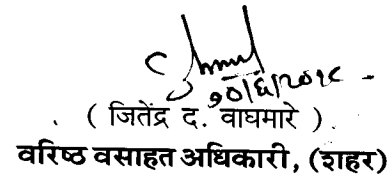 १०/६/२०१८
( जितेंद्र द. वाघमारे )
वरिष्ठ वसाहत अधिकारी, (शहर)